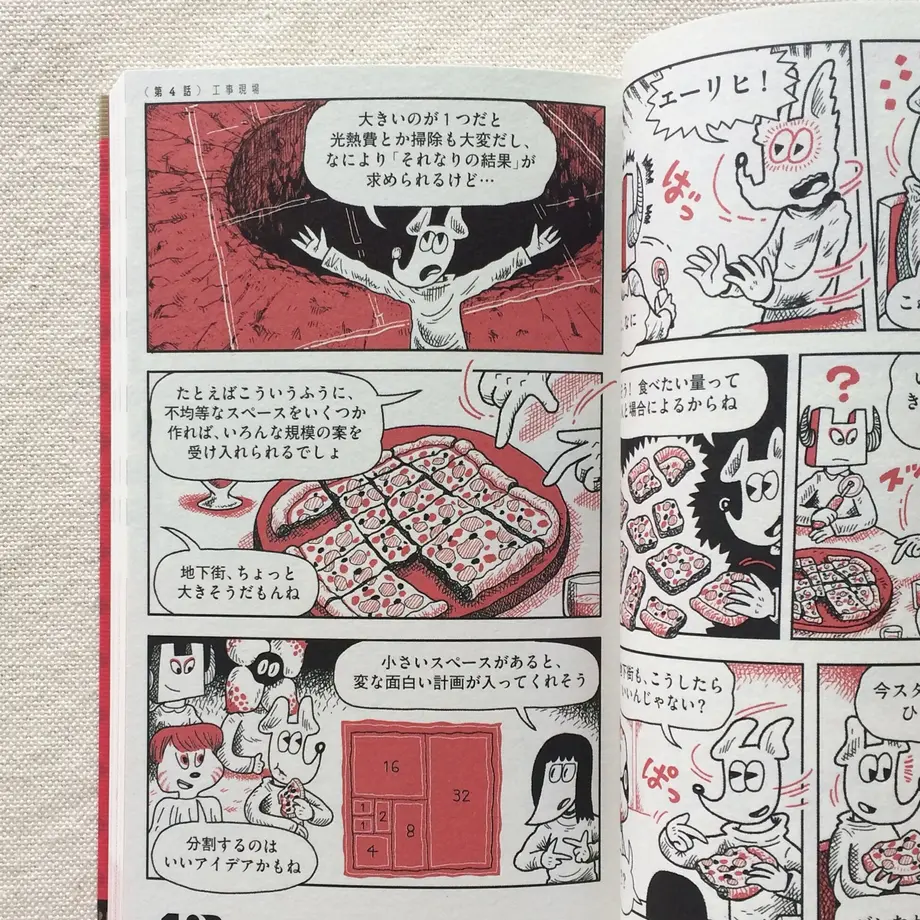 エーリヒ！
ばっ
なに
こ
う！ 食べたい量って
場合によるからね
？
下街も、こうしたら
いいんじゃない？
ぱっ
今スタ
ひ
（第4話）工事現場
大きいのが1つだと
光熱費とか掃除も大変だし、
なにより「それなりの結果」が
求められるけど…
たとえばこういうふうに、
不均等なスペースをいくつか
作れば、いろんな規模の案を
受け入れられるでしょ
地下街、ちょっと
大きそうだもんね
小さいスペースがあると、
変な面白い計画が入ってくれそう
16
32
1
1
2
8
4
分割するのは
いいアイデアかもね